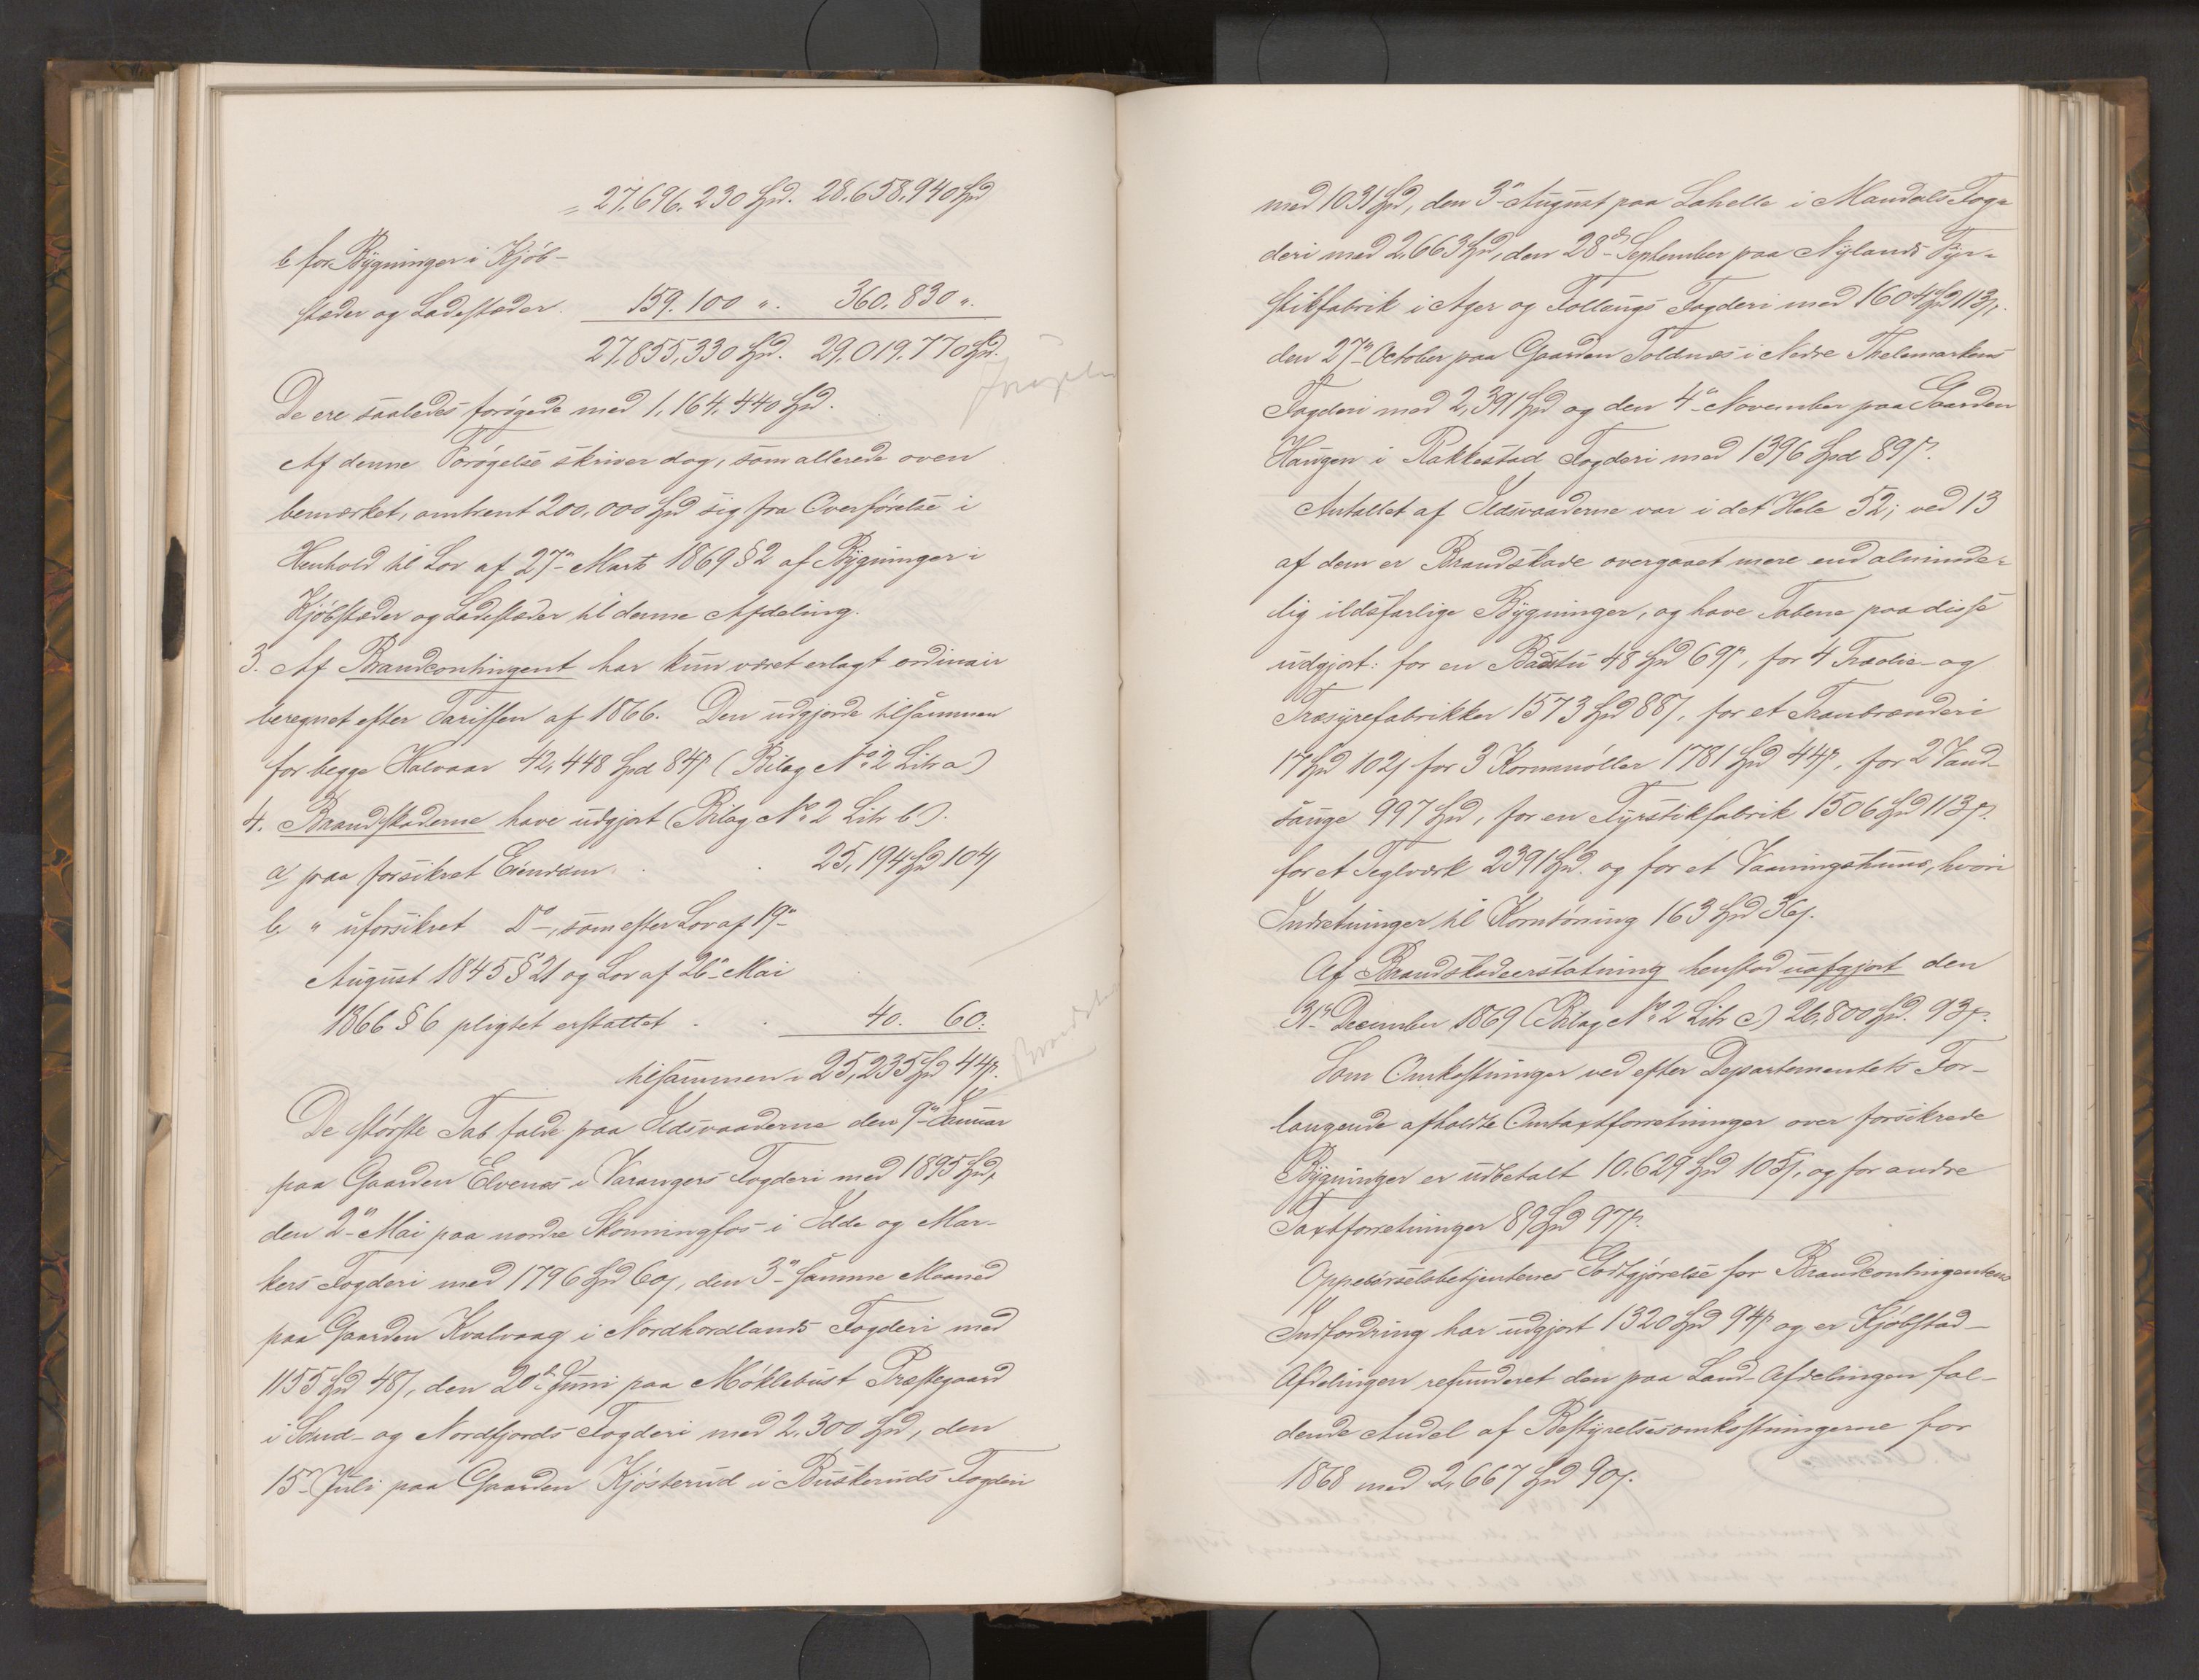 = 27,696,230 Spd. 28,658,940 Spd
b for Bygninger i Kjøb-
stæder og Ladestæder. 159,100 ". 360,830 ".
27,855,330 Spd. 29,019,770 Spd.
De ere saaledes forøgede med 1,164,440 Spd.
Af denne Forøgelse skriver dog, som allerede oven
bemærket, omtrent 200,000 Spd sig fra Overførelse i
Henhold til Lov af 27de Marts 1869 § 2 af Bygninger i
Kjøbstæder og Ladestæder til denne Afdeling.
3. Af Brandcontingent har kun været erlagt ordinair
beregnet efter Tariffen af 1866. Den udgjorde tilsammen
for begge Halvaar 42,448 Spd 84 s (Bilag No 2 Litr a)
4. Brandskaderne have udgjort (Bilag No 2 Litr b).
a, paa forsikret Eiendom . . 25,194 Spd 104 s
b, " uforsikret Do, som efter Lov af 19de
August 1845 § 21 og Lov af 26de Mai
1866 § 6 pligtet erstattet . . 40. 60.
tilsammen = 25,235 Spd 44 s.
De største Tab faldt paa Ildsvaaderne den 9de Januar
paa Gaarden Elvenæs i Varangers Fogderi med 1895 Spd,
den 2den Mai paa nordre Skonningfos i Idde og Mar-
kers Fogderi med 1796 Spd 60 s, den 3die samme Maaned
paa Gaarden Kvalvaag i Nordhordlands Fogderi med
1155 Spd 48 s, den 20de Juni paa Møklebust Præstegaard
i Sønd- og Nordfjords Fogderi med 2,300 Spd, den
15de Juli paa Gaarden Kjøsterud i Buskeruds Fogderi
med 1031 Spd, den 3die August paa Lahelle i Mandals Fog-
deri med 2,663 Spd, den 28de September paa Nylands Fyr-
stikfabrik i Ager og Follougs Fogderi med 1604 Spd 113 s,
den 27de October paa Gaarden Foldnæs i Nedre Thelemarkens
Fogderi med 2,391 Spd og den 4de November paa Gaarden
Haugen i Rakkestad Fogderi med 1396 Spd 89 s.
Antallet af Ildsvaaderne var i det Hele 52; ved 13
af dem er Brandskade overgaaet mere end alminde-
lig ildsfarlige Bygninger, og have Tabene paa disse
udgjort: for en Badstu 48 Spd 69 s, for 4 Træolie- og
Træsyrefabrikker 1573 Spd 88 s, for et Tranbrænderi
17 Spd 102 s for 3 Kornmøller 1781 Spd 44 s, for 2 Vand-
sauge 997 Spd, for en Fyrstikfabrik 1506 Spd 113 s.
for et Teglværk 2391 Spd. og for et Vaaningshuus, hvori
Indretninger til Korntørring 163 Spd 36 s.
Af Brandskadeerstatning henstod uafgjort den
31te December 1869 (Bilag No 2 Litr c) 26,800 Spd. 93 s.
Som Omkostninger ved efter Departementets For-
langende afholdte Omtaxtforretninger over forsikrede
Bygninger er udbetalt 10,629 Spd 105 s, og for andre
Taxtforretninger 89 Spd 97 s.
Oppebørselsbetjentenes Godtgjørelse for Brandcontingentens
Indfordring har udgjort 1320 Spd 94 s og er Kjøbstad-
Afdelingen refunderet den paa Land-Afdelingen fal-
dende Andel af Bestyrelsesomkostningerne for
1868 med 2,667 Spd 90 s.